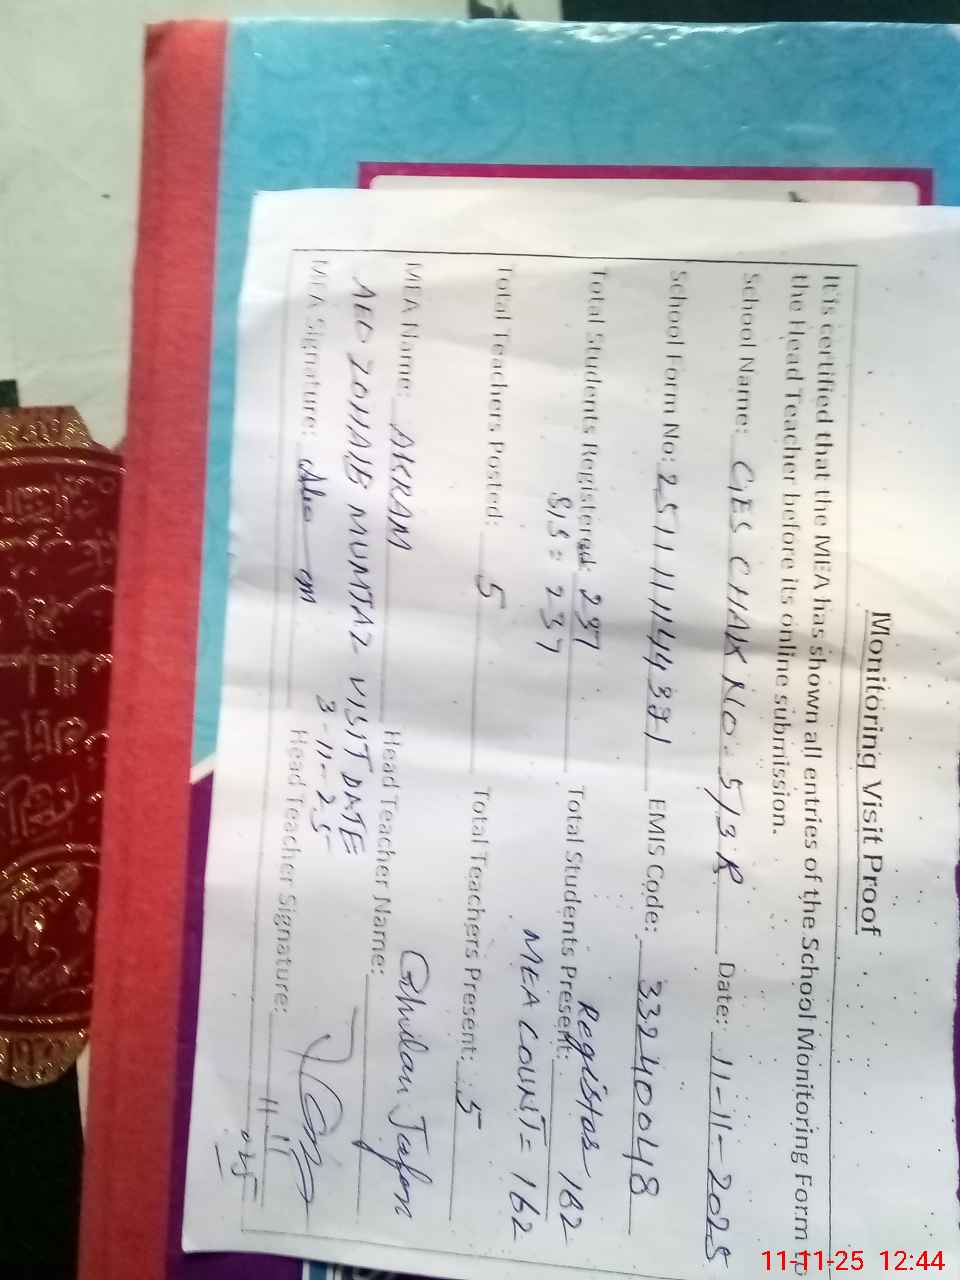 Monitoring Visit Proof
It is certified that the MEA has shown all entries of the School Monitoring Form to
the Head Teacher before its online submission.
School Name: GES CHAK NO. 5/3.R Date: 11-11-2025
School Form No: EMIS Code: 33240048
Total Students Registered: 237 Total Students Present: Register 162
SIS = 237 MEA COUNT = 162
Total Teachers Posted: 5 Total Teachers Present: 5
MEA Name: AKRAM Head Teacher Name: Ghulam
AEO ZOHAIB MUMTAZ VISIT DATE
3-11-25
MEA Signature: Head Teacher Signature:
11-11
025
11-11-25 12:44